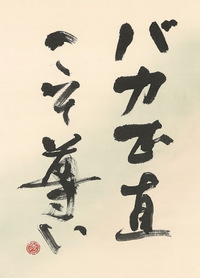 バカ正直
こそ尊い